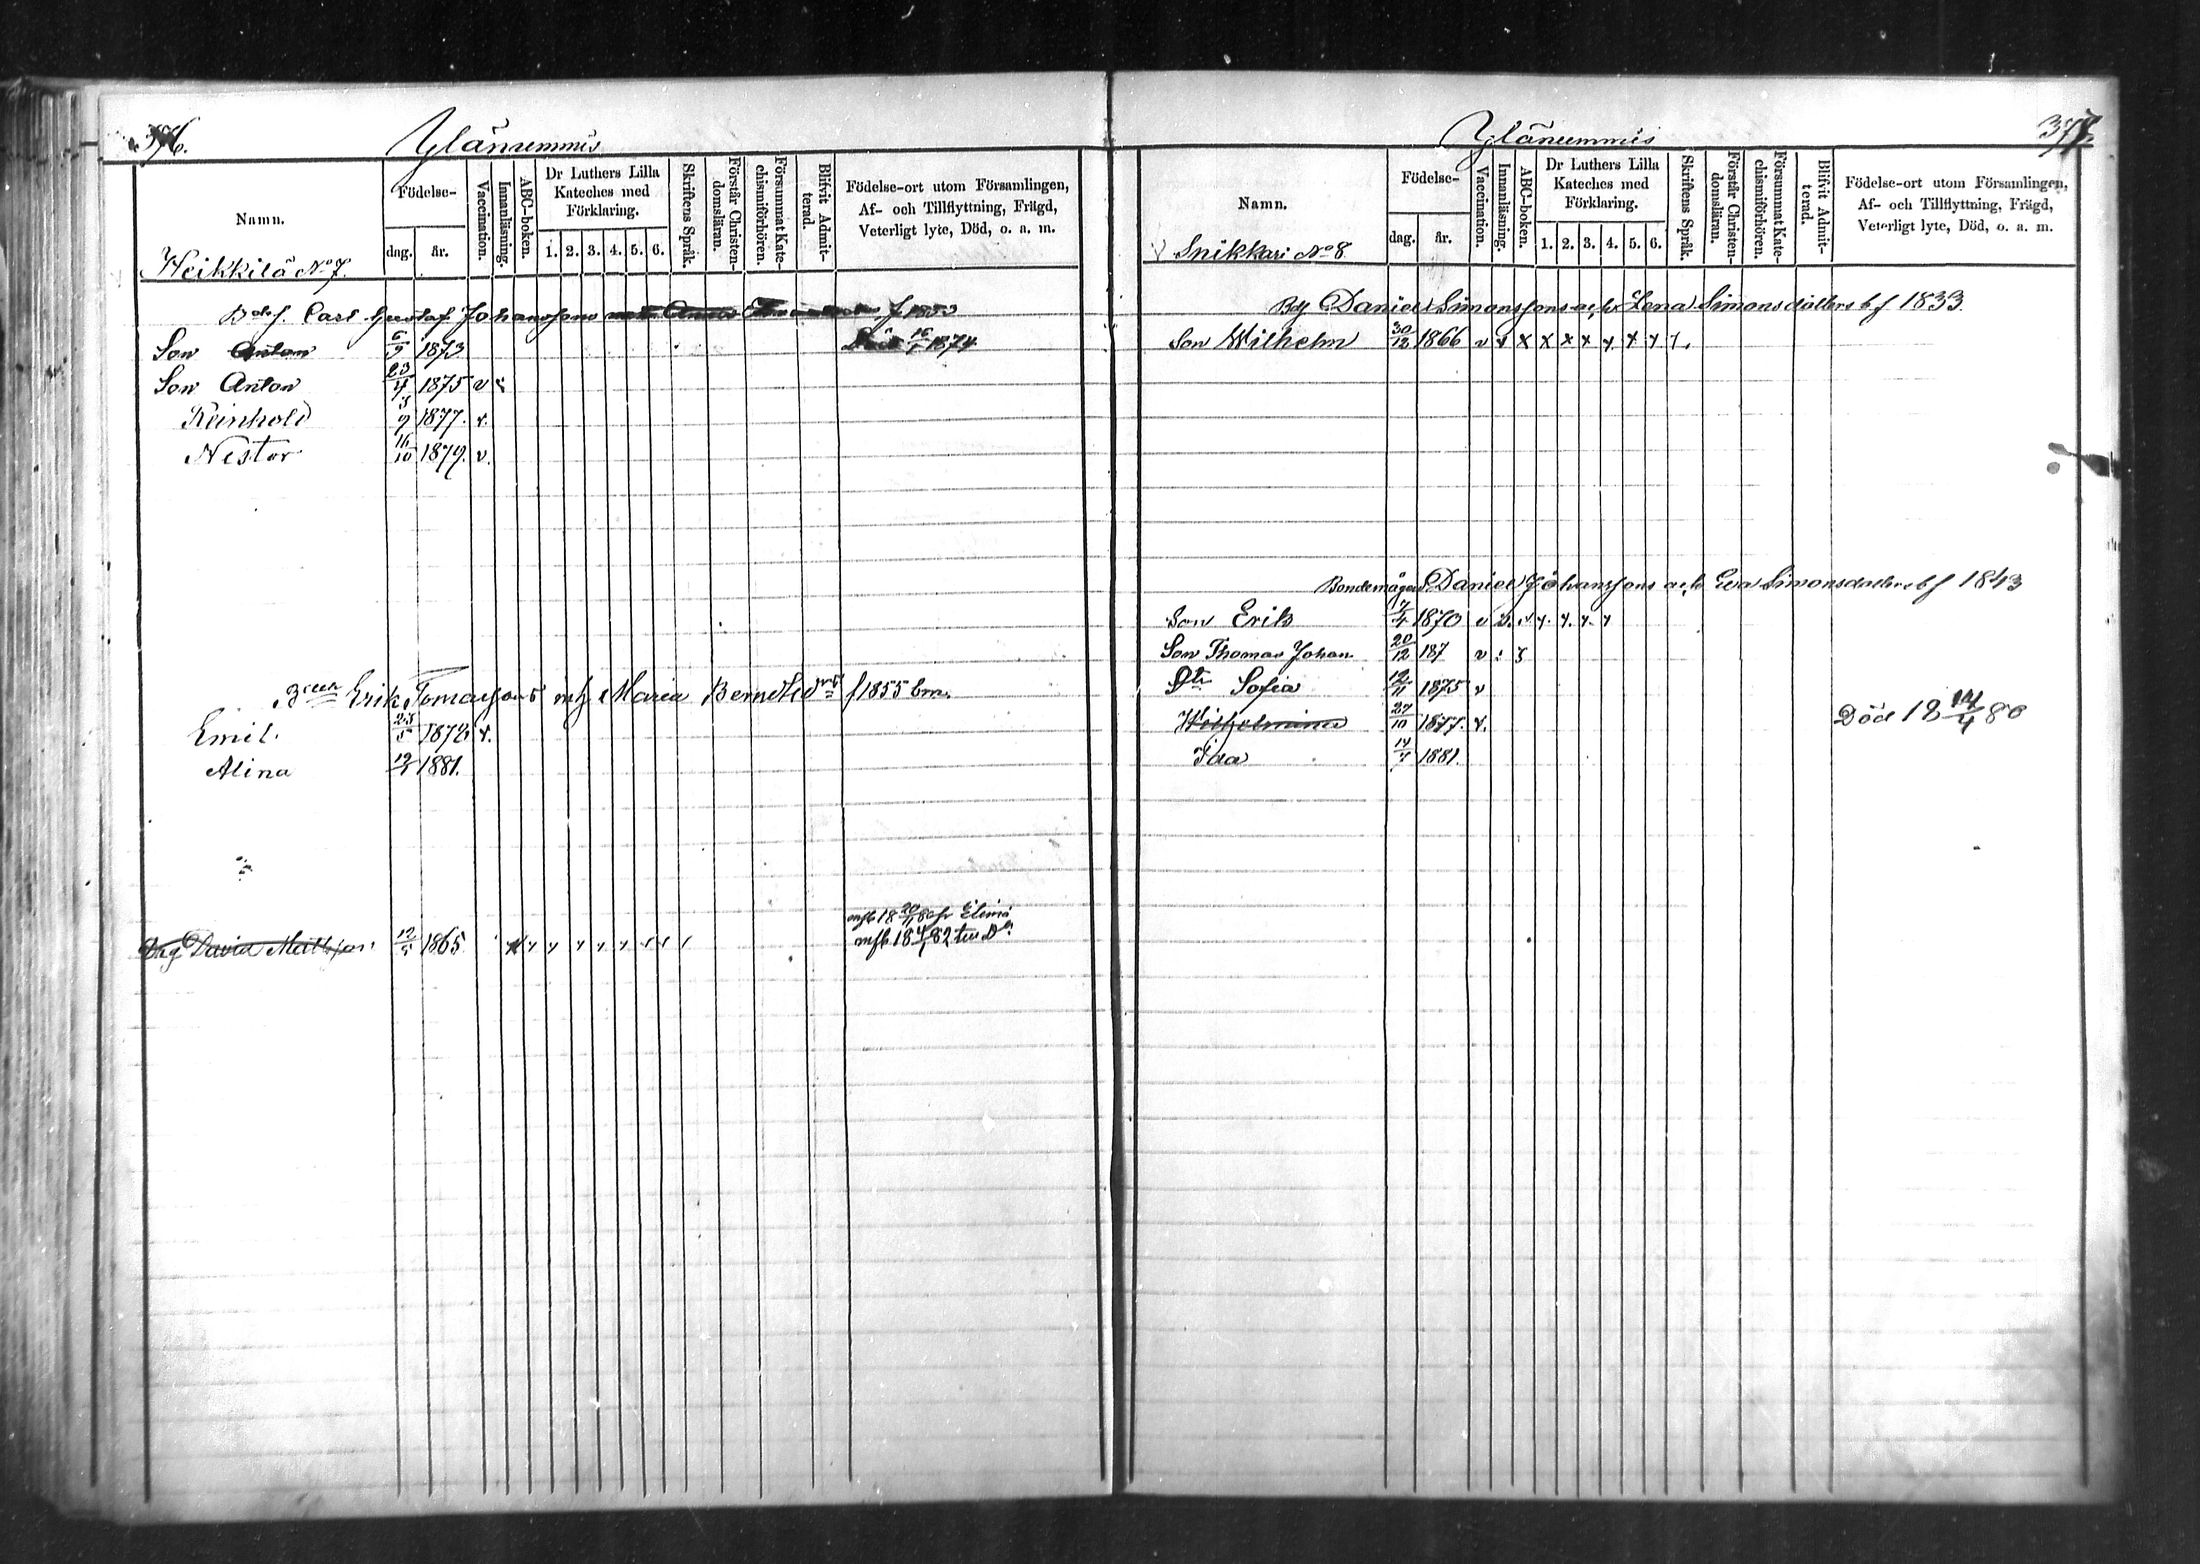 376.
Ylänummis
Namn.
Födelse-
dag. år.
Vaccination.
Innanläsning.
ABC-boken.
Dr Luthers Lilla
Kateches med
Förklaring.
1. 2. 3. 4. 5. 6.
Skriftens Språk.
Förstår Christen-
domsläran.
Försummat Kate-
chismiförhören.
Blifvit Admit-
terad.
Födelse-ort utom Församlingen,
Af- och Tillflyttning, Frägd,
Veterligt lyte, Död, o. a. m.
Heikkilä No 7.
Carl Gustaf Johanssons f 1853
Son Anton 6/9 1873 Död 16/ 1874
Son Anton 23/4 1875 v
Reinhold 9 1877.
Nestor 16/10 1879. v.
Erik Tomassons Maria f 1855 bm.
Emil 5 1878
Alina 12 1881.
David Mattsson 12 1865
18 20 80 fr Elimä
18 82
377.
Ylänummis
Namn.
Födelse-
dag. år.
Vaccination.
Innanläsning.
ABC-boken.
Dr Luthers Lilla
Kateches med
Förklaring.
1. 2. 3. 4. 5. 6.
Skriftens Språk.
Förstår Christen-
domsläran.
Försummat Kate-
chismiförhören.
Blifvit Admit-
terad.
Födelse-ort utom Församlingen,
Af- och Tillflyttning, Frägd,
Veterligt lyte, Död, o. a. m.
Snikkari No 8
Daniel Simonssons Lena Simonsdotters bf 1833
Son Wilhelm 30/12 1866 v v x x x x x x
Bondemågen Daniel Johanssons Eva Simonsdotters bf 1843
Son Erik 1870 v
Son Thomas Johan 20/12 187 v
Dtr Sofia 12/11 1875 v
Wilhelmina 27/10 1877. Död 18 14/4 80
Ida 14 1881.